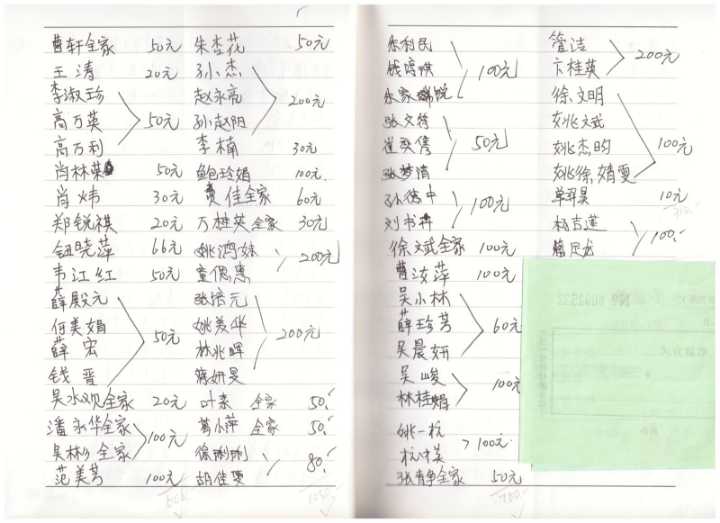 曹轩全家 50元
王涛 20元
李淑珍
高万英 50元
高万利
肖林荣 50元
肖炜 30元
郑锐祺 20元
钮晓萍 66元
韦江红 50元
薛殿元
何美娟 50元
薛宏
钱晋
吴水观全家 20元
潘永华全家 100元
吴林 全家
范美芳 100元
朱杏花 50元
孙杰
赵永亮 200元
孙赵阳
李楠 30元
鲍玲娟 100元
佳全家 60元
万桂英全家 30元
姚鸿妹 200元
童偲惠
张培元
姚美华 200元
林兆晖
蒋妍旻
叶亲 全家 50
葛小萍 全家 50
徐刚刚 80
胡佳雯
朱利民
100元
朱家
张文蓉
崔奕隽 50元
张梦清
孙德中 100元
刘书祥
徐文斌全家 100元
曹汝萍 100元
吴小林
薛珍芳 60元
吴晨妍
吴峻 100元
林桂娟
姚一杭 100元
杭中英
张静全家 50元
管洁 200元
卞桂英
徐文明
姚文斌
姚杰昀 100元
姚徐婧雯
单翠昊 10元
杨吉莲 100
詹足龙